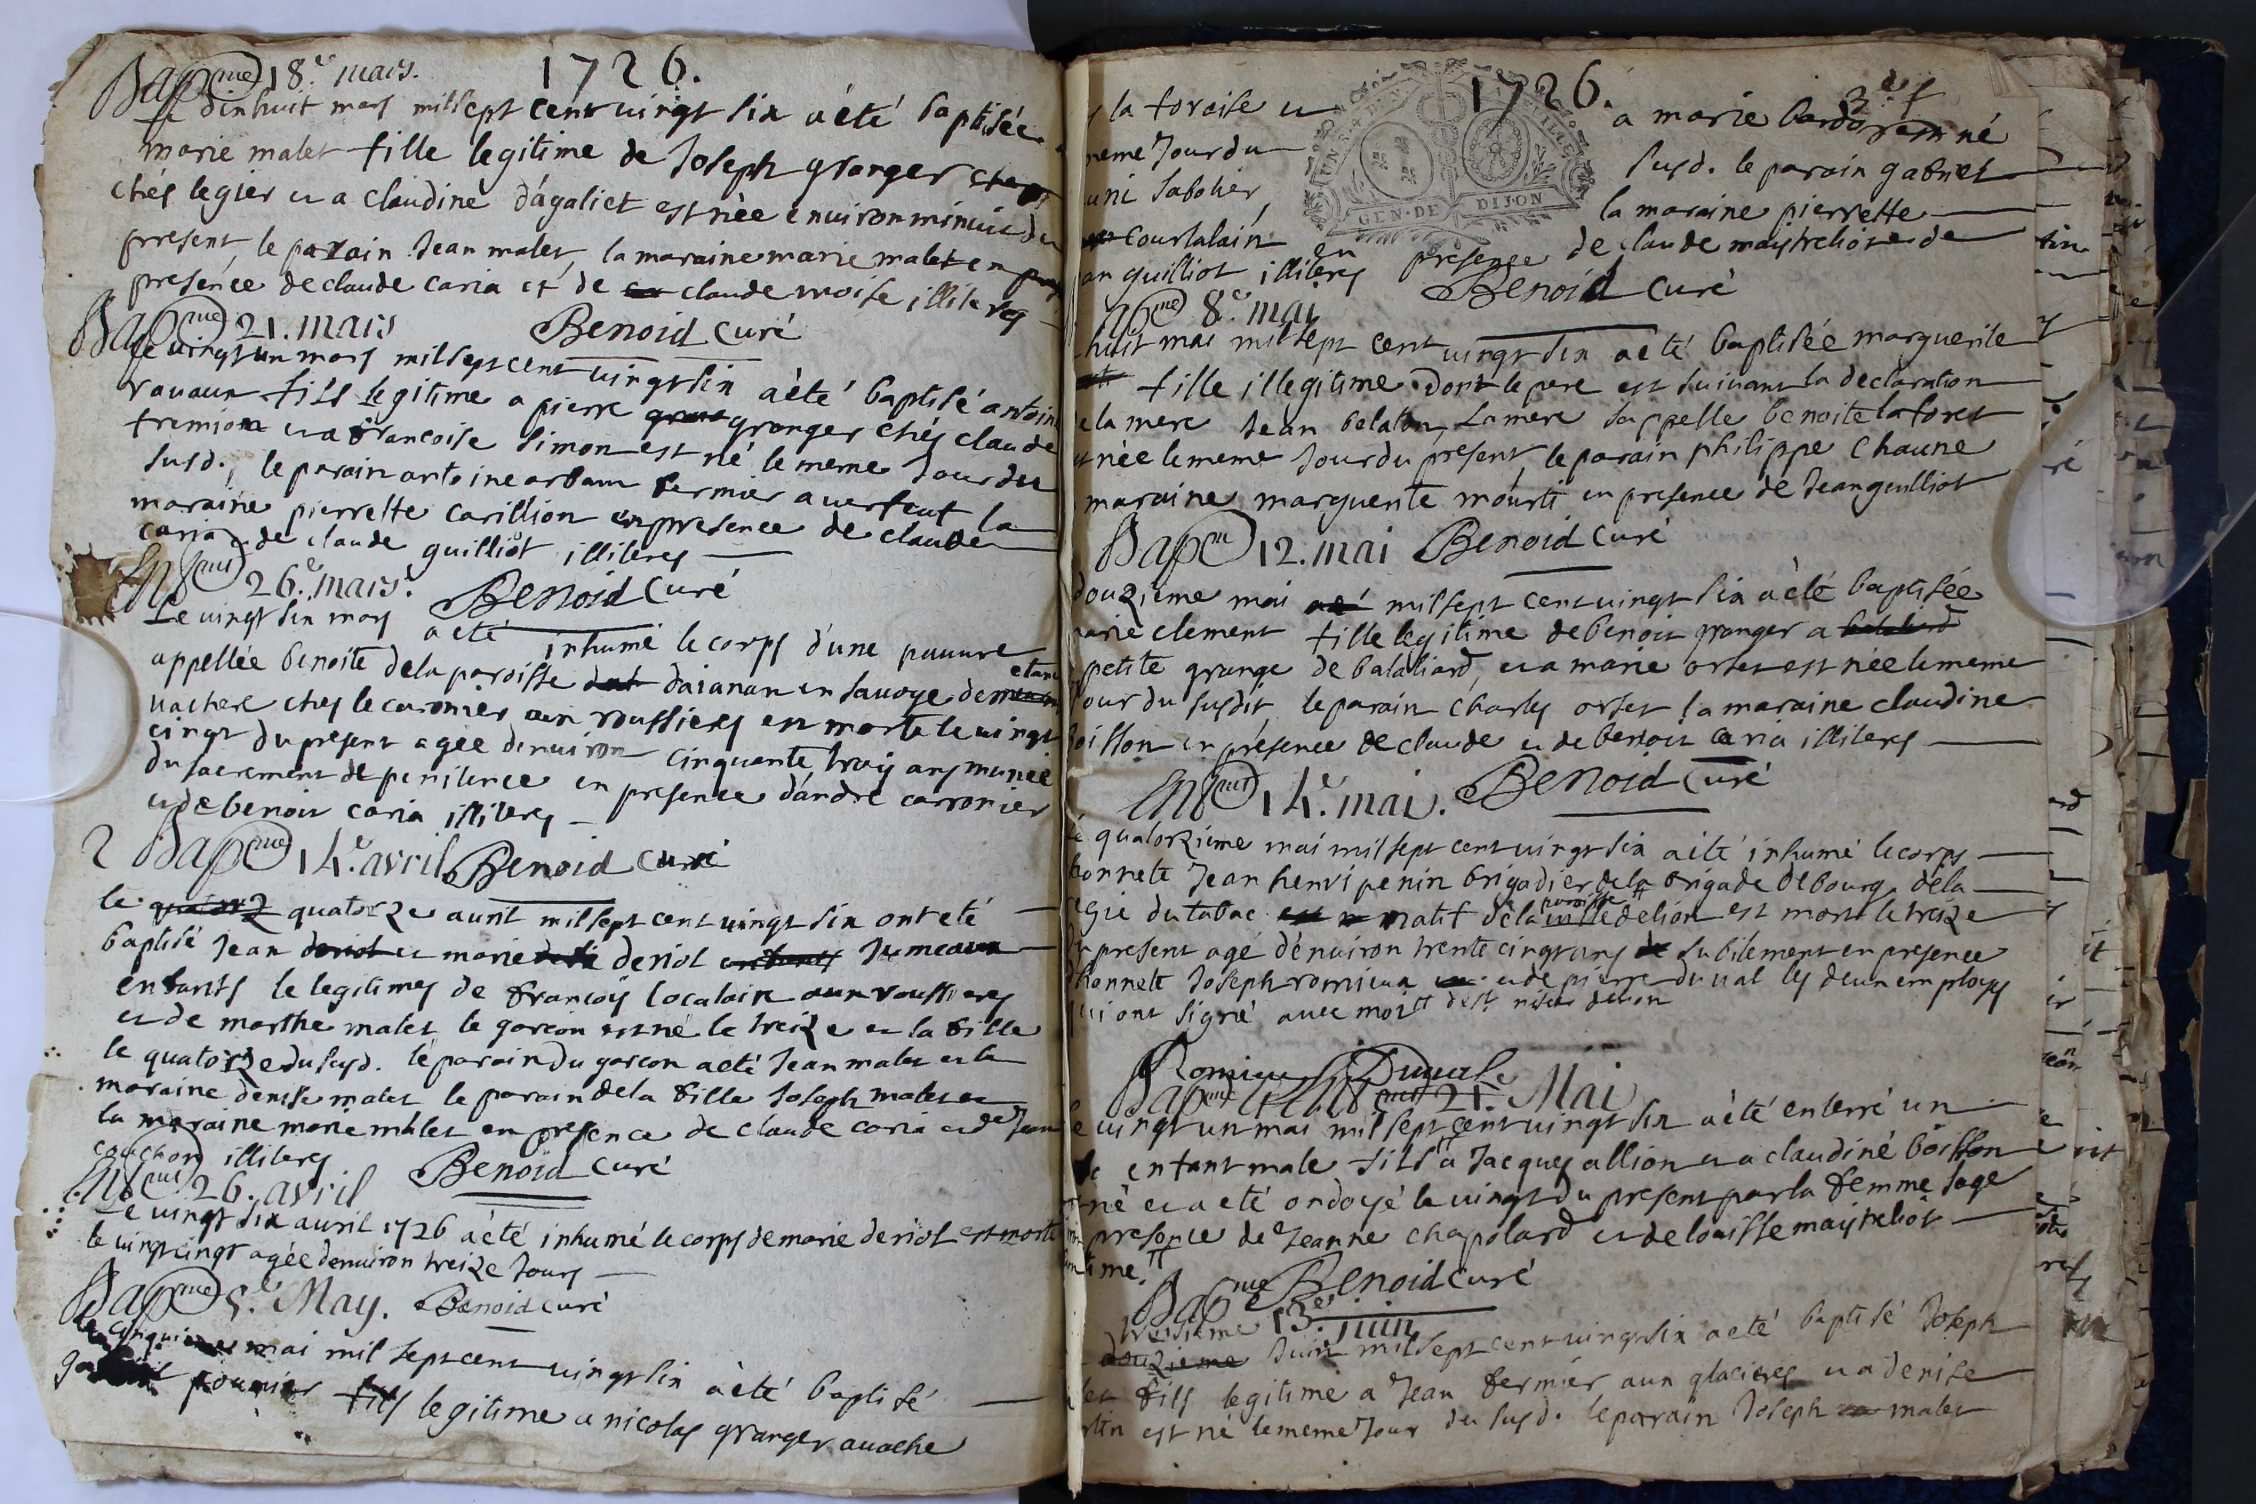 1726.
Bap.me 18.e mars.
Le dixhuit mars mil sept cent vingt six a été baptisée
marie malet fille legitime de Joseph granger
chés legier et a claudine dágaliet est née environ minuit du
present, le parain Jean malet, la maraine marie malet en
presénce de claude caria et de claude moise illiterés
Bap.me 21. mars Benoid curé
Le vingt un mars mil sept cent vingt six a été baptisé antoine
ravaux fils legitime a pierre granger chés claude
tremion et a francoise simon est né le meme Jour du
susd., le parain antoine arbam fermier a verfeut la
maraine pierrette carillion en presence de claude
caria et de claude guilliot illiterés
26.e mars. Benoid curé
Le vingt six mars a eté inhumé le corps d'une pauvre
appellée benoite de la paroisse daianan en savoye etant
vachere chés le caronier aux roussieres est morte le vingt
cinqt du present agée denviron cinquante trois ans munie
du sacrement de penitence en presence d'andré carronier
et de benoit caria illiterés
2 Bap.me 14.e avril Benoid curé
le quatorze avril mil sept cent vingt six ont eté
baptisé Jean et marie deriol Jumeaux
enfants le legitimes de francois localain aux roussieres
et de marthe malet le garcon est né le treize et la fille
le quatorze du susd. le parain du garcon a eté Jean malet et la
maraine denise malet le parain de la fille Joseph malet et
la maraine marie malet en presence de claude caria et de Jean
couchon illiterés Benoid curé
26. avril
Le vingt six avril 1726 a été inhumé le corps de marie deriol est morte
le vingt cinqt agée denviron treize Jours
Bap.me 5.e May. Benoid curé
le cinquieme mai mil sept cent vingt six a été baptisé
fournier fils legitime a nicolas granger a vache
1726.
la foraise et a marie né
meme Jour du susd. le parain gabriel
sabotier, la maraine pierrette
courtalain en presence de claude maistreliot et de
guilliot illiterés Benoid curé
8.e mai
huit mai mil sept cent vingt six a été baptisée marguerite
fille illegitime dont le pere est suivant la declaration
de la mere Jean belaton, la mere sappelle benoite laforet
est née le meme Jour du present, le parain philippe chaune
maraine marguerite mourti en presence de Jean guilliot
Bap.m 12. mai Benoid curé
douzieme mai mil sept cent vingt six a été baptisée
marie clement fille legitime de benoit granger a
petite grange de balaliard, et a marie orset est née le meme
Jour du susdit, le parain charles orset la maraine claudine
boisson en présence de claude et de benoit caria illiterés
14.e mai. Benoid curé
Le quatorzieme mai mil sept cent vingt six a été inhumé le corps
honnete Jean henri penin brigadier de la brigade de bourg de la
regie du tabac natif de la paroisse de lion est mort le treize
du present agé dénviron trente cinqt ans subitement en presence
dhonnete Joseph romieux et de pierre duval les deux employés
qui ont signé avec moi
Romieux Duval
Bap.me et 21.e Mai
Le vingt un mai mil sept cent vingt six a été enterré un
enfant male fils a Jacques allion et a claudine boisson
né et a eté ondoyé le vingt du present par la femme sage
presence de Jeanne chapolard et de louisse maistreliot
Bap.me Benoid curé
13.e Juin
treisieme Juin mil sept cent vingt six a eté baptisé Joseph
fils legitime a Jean fermier aux glacieres et a denise
est né le meme Jour du susd. le parain Joseph malet
GEN. DE DIJON